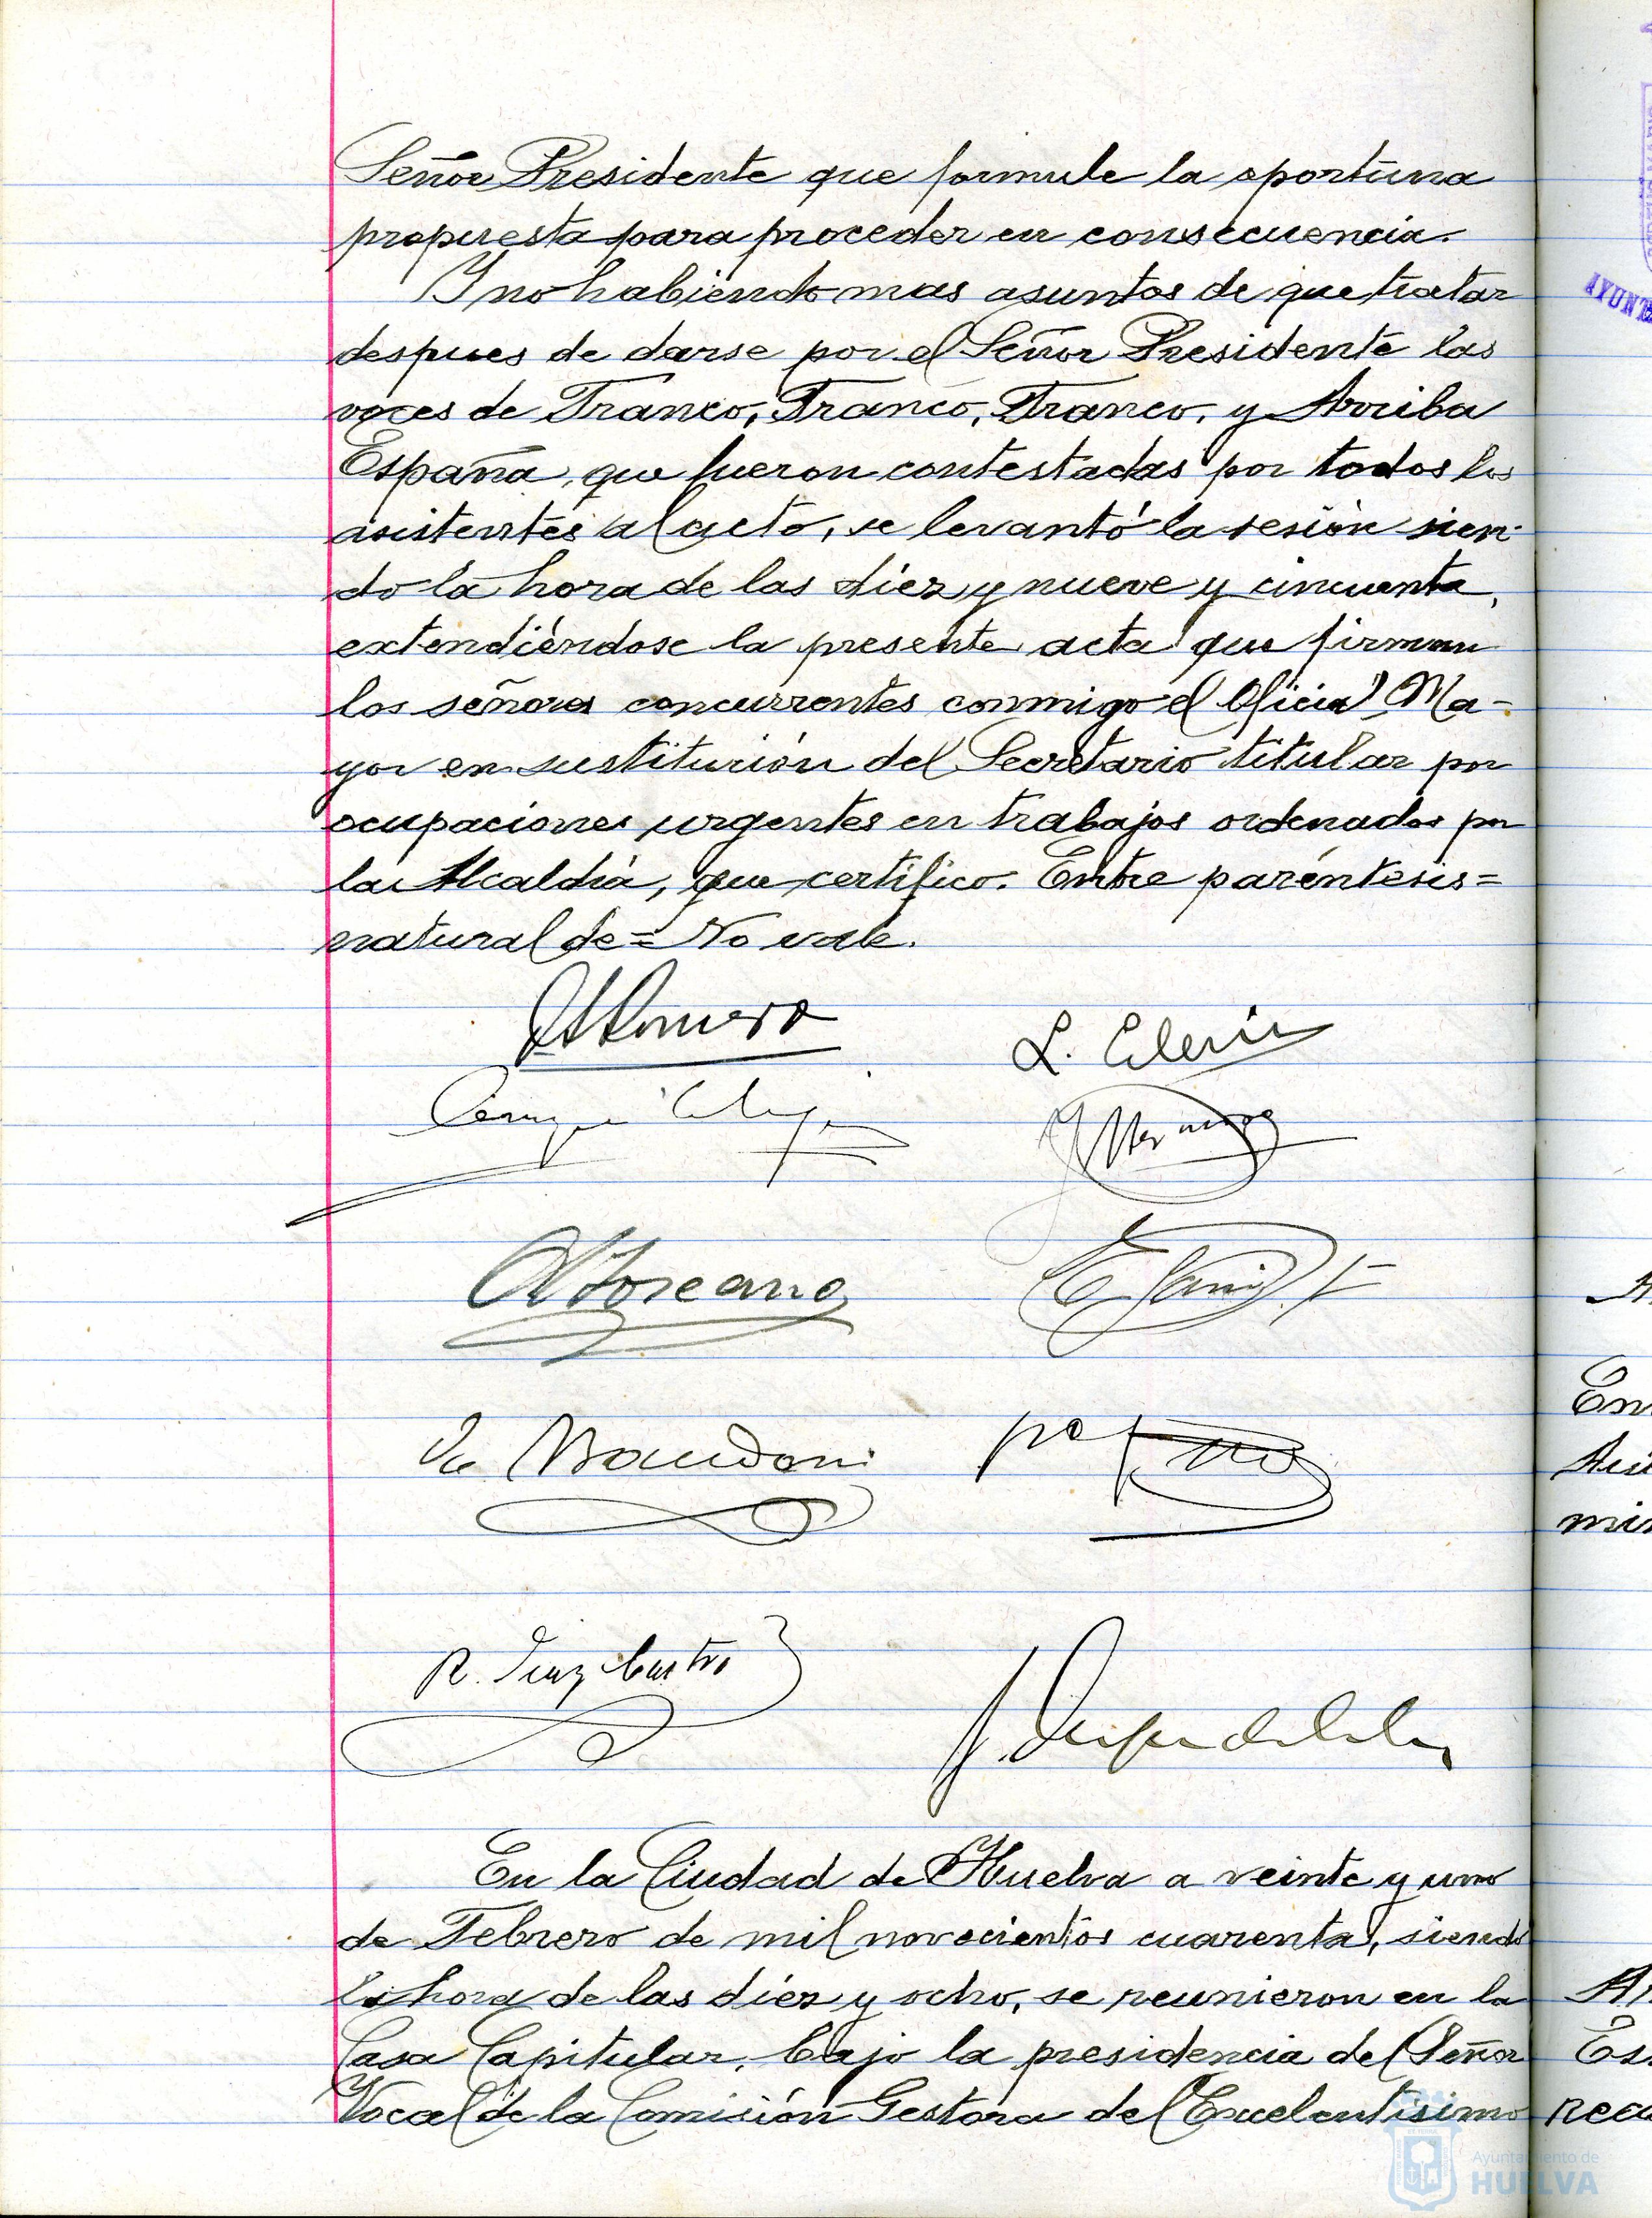 Señor Presidente que formule la oportuna
propuesta para proceder en consecuencia.
Y no habiendo mas asuntos de que tratar
despues de darse por el Señor Presidente las
voces de Franco, Franco, Franco, y Arriba
España, que fueron contestadas por todos los
asistentes al acto, se levantó la sesión sien-
do la hora de las diez y nueve y cincuenta,
extendiéndose la presente acta que firman
los señores concurrentes conmigo el Oficial Ma-
yor en sustitución del Secretario titular por
ocupaciones urgentes en trabajos ordenados por
la Alcaldía, que certifico. Entre paréntesis=
natural de= No vale.
Romero
L.
R. Diaz Castro
En la Ciudad de Huelva a veinte y uno
de Febrero de mil novecientos cuarenta, siendo
la hora de las diez y ocho, se reunieron en la
Casa Capitular, bajo la presidencia del Señor
Vocal de la Comisión Gestora del Excelentisimo
Ayuntamiento de
HUELVA